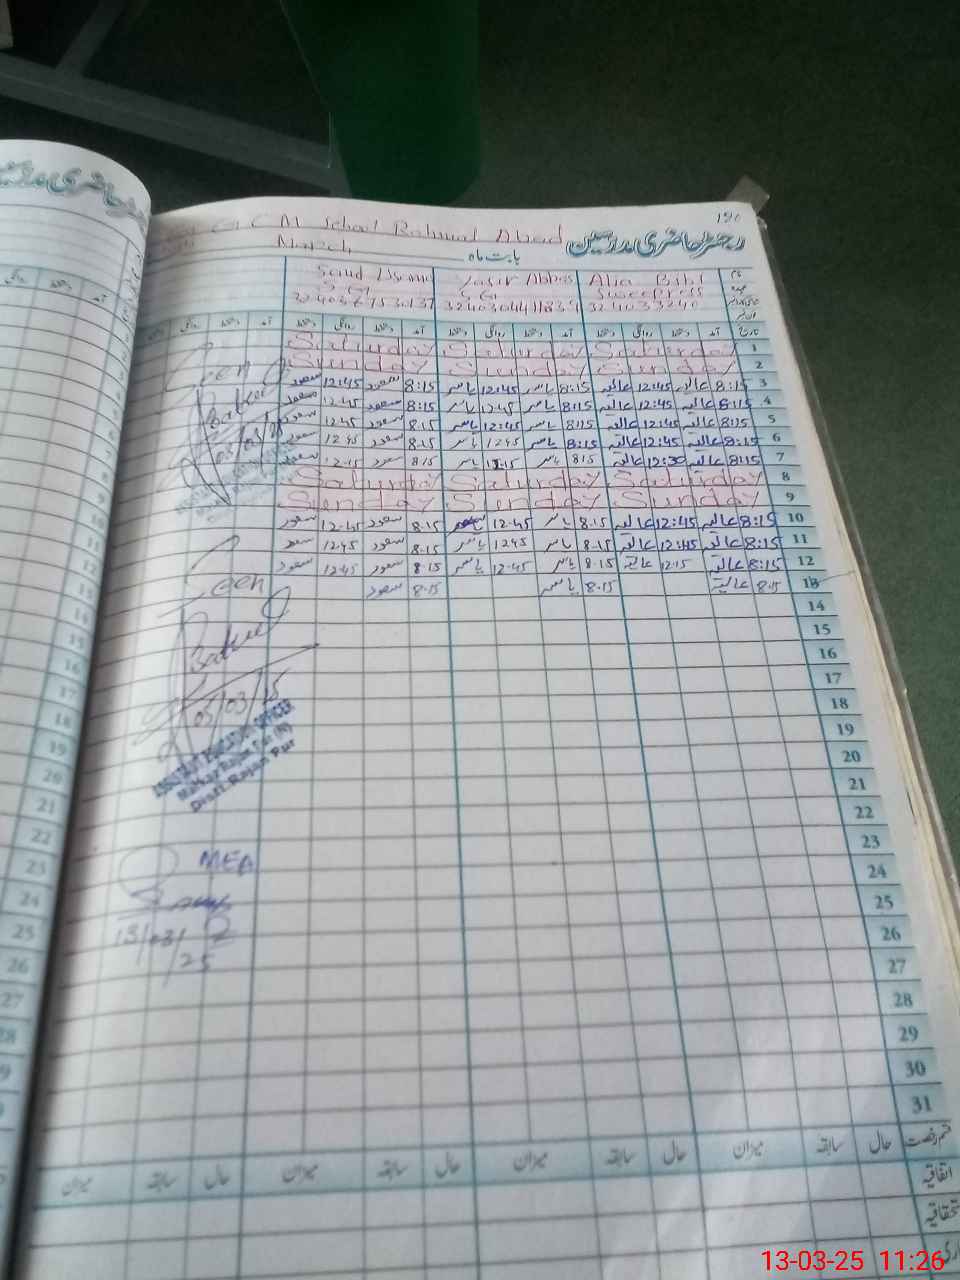 190
رجسٹر حاضری مدرسین
G C M School Rahmat Abad
بابت ماہ March
نام Alia Bibi Yasir Abbas Saud
عہدہ Sweepress
تاریخ آمد دستخط روانگی دستخط آمد دستخط روانگی دستخط آمد دستخط روانگی دستخط آمد دستخط روانگی
1 Saturday Saturday Saturday
2 Sunday Sunday Sunday
3 8:15 عالیہ 12:45 عالیہ 8:15 یاسر 12:45 یاسر 8:15 سعود 12:45 سعود
4 8:15 عالیہ 12:45 عالیہ 8:15 یاسر 12-45 یاسر 8:15 سعود 12-45 سعود
5 8:15 عالیہ 12:45 عالیہ 8:15 یاسر 12:45 یاسر 8.15 سعود 12.45 سعود
6 8:15 عالیہ 12:45 عالیہ 8:15 یاسر 1245 یاسر 8.15 سعود 12.45 سعود
7 8:15 عالیہ 12:30 عالیہ 8.15 یاسر 12.15 یاسر 8.15 سعود 12.15 سعود
8 Saturday Saturday Saturday
9 Sunday Sunday Sunday
10 8:15 عالیہ 12:45 عالیہ 8.15 یاسر 12.45 8.15 سعود 12-45 سعود
11 8:15 عالیہ 12:45 عالیہ 8.15 یاسر 1245 یاسر 8.15 سعود 12.45 سعود
12 8:15 عالیہ 12:15 عالیہ 8.15 یاسر 12.45 یاسر 8.15 سعود 12.45 سعود
13 8.15 عالیہ 8.15 یاسر 8.15 سعود
14
15
16
17
18
19
20
21
22
23
24
25
26
27
28
29
30
31
Seen
Seen
05/03/25
ASSISTANT EDUCATION OFFICER
Markaz Rajan Pur (N)
Distt. Rajan Pur
MEA
13/03/25
قسم رخصت حال سابقہ میزان حال سابقہ میزان حال سابقہ میزان حال سابقہ میزان
اتفاقیہ
استحقاقیہ
13-03-25 11:26